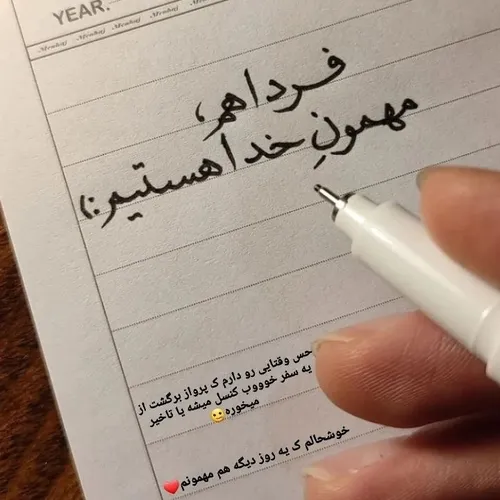 YEAR.
Menhaj Menhaj Menhaj Menhaj
فردا هم،
مهمونِ خدا هستیم:)
حس وقتایی رو دارم ک پرواز برگشت از
یه سفر خوووب کنسل میشه یا تاخیر
میخوره😉
خوشحالم ک یه روز دیگه هم مهمونم❤️